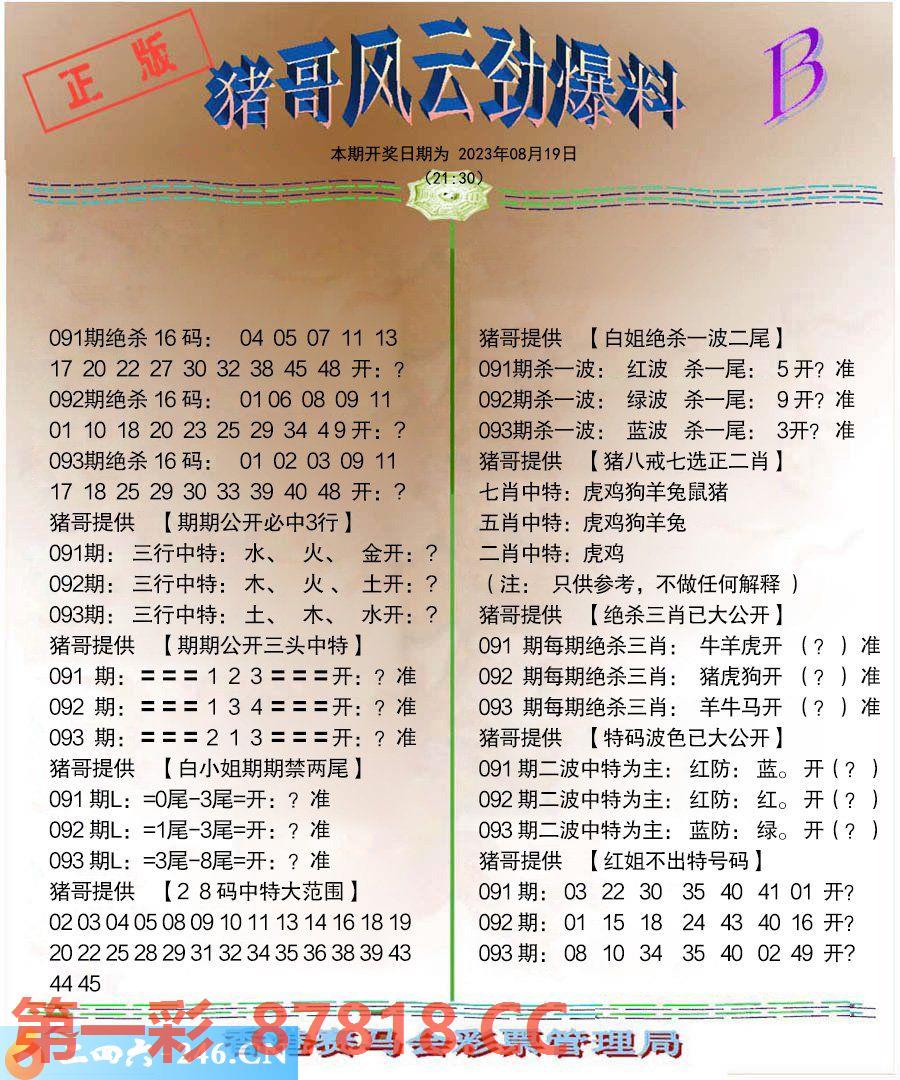 正版
猪哥风云劲爆料
B
本期开奖日期为 2023年08月19日
(21:30)
091期绝杀16码： 04 05 07 11 13
17 20 22 27 30 32 38 45 48 开：?
092期绝杀16码： 01 06 08 09 11
01 10 18 20 23 25 29 34 4 9 开：?
093期绝杀16码： 01 02 03 09 11
17 18 25 29 30 33 39 40 48 开：?
猪哥提供 【期期公开必中3行】
091期：三行中特：水、 火、 金开：?
092期：三行中特：木、 火、 土开：?
093期：三行中特：土、 木、 水开：?
猪哥提供 【期期公开三头中特】
091 期：===1 2 3===开：? 准
092 期：===1 3 4===开：? 准
093 期：===2 1 3===开：? 准
猪哥提供 【白小姐期期禁两尾】
091期L：=0尾-3尾=开：? 准
092期L：=1尾-3尾=开：? 准
093期L：=3尾-8尾=开：? 准
猪哥提供 【28码中特大范围】
02 03 04 05 08 09 10 11 13 14 16 18 19
20 22 25 28 29 31 32 34 35 36 38 39 43
44 45
猪哥提供 【白姐绝杀一波二尾】
091期杀一波： 红波 杀一尾： 5开? 准
092期杀一波： 绿波 杀一尾： 9开? 准
093期杀一波： 蓝波 杀一尾： 3开? 准
猪哥提供 【猪八戒七选正二肖】
七肖中特：虎鸡狗羊兔鼠猪
五肖中特：虎鸡狗羊兔
二肖中特：虎鸡
（注： 只供参考，不做任何解释 ）
猪哥提供 【绝杀三肖已大公开】
091 期每期绝杀三肖： 牛羊虎开 （?）准
092 期每期绝杀三肖： 猪虎狗开 （?）准
093 期每期绝杀三肖： 羊牛马开 （?）准
猪哥提供 【特码波色已大公开】
091期二波中特为主：红防：蓝。开(? )
092期二波中特为主：红防：红。开(? )
093期二波中特为主：蓝防：绿。开(? )
猪哥提供 【红姐不出特号码】
091期： 03 22 30 35 40 41 01 开?
092期： 01 15 18 24 43 40 16 开?
093期： 08 10 34 35 40 02 49 开?
第一彩 87818.CC
二四六 246.CN
香港赛马会彩票管理局